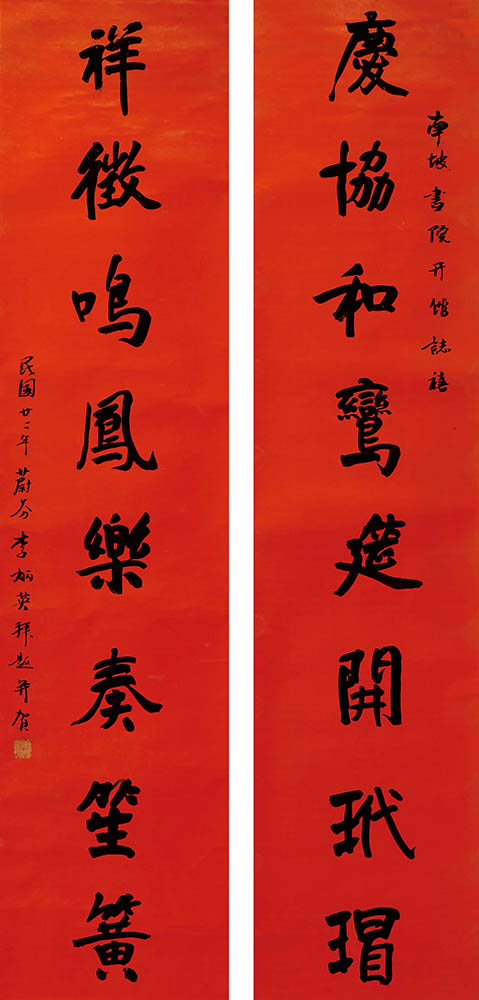 南坡書院开館誌禧
慶協和鸞筵開玳瑁
祥徵鳴鳳樂奏笙簧
民國廿二年蔚芬李炳英拜題并賀